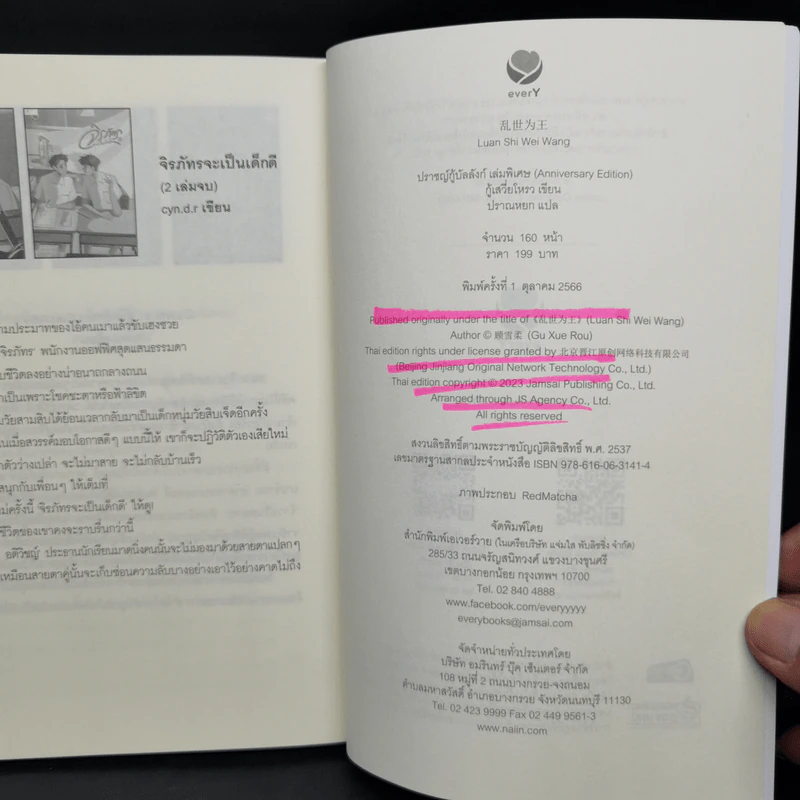 จิรภัทรจะเป็นเด็กดี
(2 เล่มจบ)
cyn.d.r เขียน
ามประมาทของไอ้คนเมาแล้วขับเฮงซวย
จิรภัทร' พนักงานออฟฟิศสุดแสนธรรมดา
บชีวิตลงอย่างน่าอนาถกลางถนน
าเป็นเพราะโชคชะตาหรือฟ้าลิขิต
วัยสามสิบได้ย้อนเวลากลับมาเป็นเด็กหนุ่มวัยสิบเจ็ดอีกครั้ง
นเมื่อสวรรค์มอบโอกาสดีๆ แบบนี้ให้ เขาก็จะปฏิวัติตัวเองเสียใหม่
าตัวว่างเปล่า จะไม่มาสาย จะไม่กลับบ้านเร็ว
สนุกกับเพื่อนๆ ให้เต็มที่
ม่ครั้งนี้ 'จิรภัทรจะเป็นเด็กดี' ให้ดู!
ชีวิตของเขาคงจะราบรื่นกว่านี้
อติวิชญ์ ประธานนักเรียนมาดนิ่งคนนั้นจะไม่มองมาด้วยสายตาแปลกๆ
เหมือนสายตาคู่นั้นจะเก็บซ่อนความลับบางอย่างเอาไว้อย่างคาดไม่ถึง
everY
乱世为王
Luan Shi Wei Wang
ปราชญ์กู้บัลลังก์ เล่มพิเศษ (Anniversary Edition)
กู้เสวี่ยโหรว เขียน
ปราณหยก แปล
จำนวน 160 หน้า
ราคา 199 บาท
พิมพ์ครั้งที่ 1 ตุลาคม 2566
Published originally under the title of《乱世为王》(Luan Shi Wei Wang)
Author © 顾雪柔 (Gu Xue Rou)
Thai edition rights under license granted by 北京晋江原创网络科技有限公司
(Beijing Jinjiang Original Network Technology Co., Ltd.)
Thai edition copyright © 2023 Jamsai Publishing Co., Ltd.
Arranged through JS Agency Co., Ltd.
All rights reserved
สงวนลิขสิทธิ์ตามพระราชบัญญัติลิขสิทธิ์ พ.ศ. 2537
เลขมาตรฐานสากลประจำหนังสือ ISBN 978-616-06-3141-4
ภาพประกอบ RedMatcha
จัดพิมพ์โดย
สำนักพิมพ์เอเวอร์วาย (ในเครือบริษัท แจ่มใส พับลิชชิ่ง จำกัด)
285/33 ถนนจรัญสนิทวงศ์ แขวงบางขุนศรี
เขตบางกอกน้อย กรุงเทพฯ 10700
Tel. 02 840 4888
www.facebook.com/everyyyyy
everybooks@jamsai.com
จัดจำหน่ายทั่วประเทศโดย
บริษัท อมรินทร์ บุ๊ค เซ็นเตอร์ จำกัด
108 หมู่ที่ 2 ถนนบางกรวย-จงถนอม
ตำบลมหาสวัสดิ์ อำเภอบางกรวย จังหวัดนนทบุรี 11130
Tel. 02 423 9999 Fax 02 449 9561-3
www.naiin.com